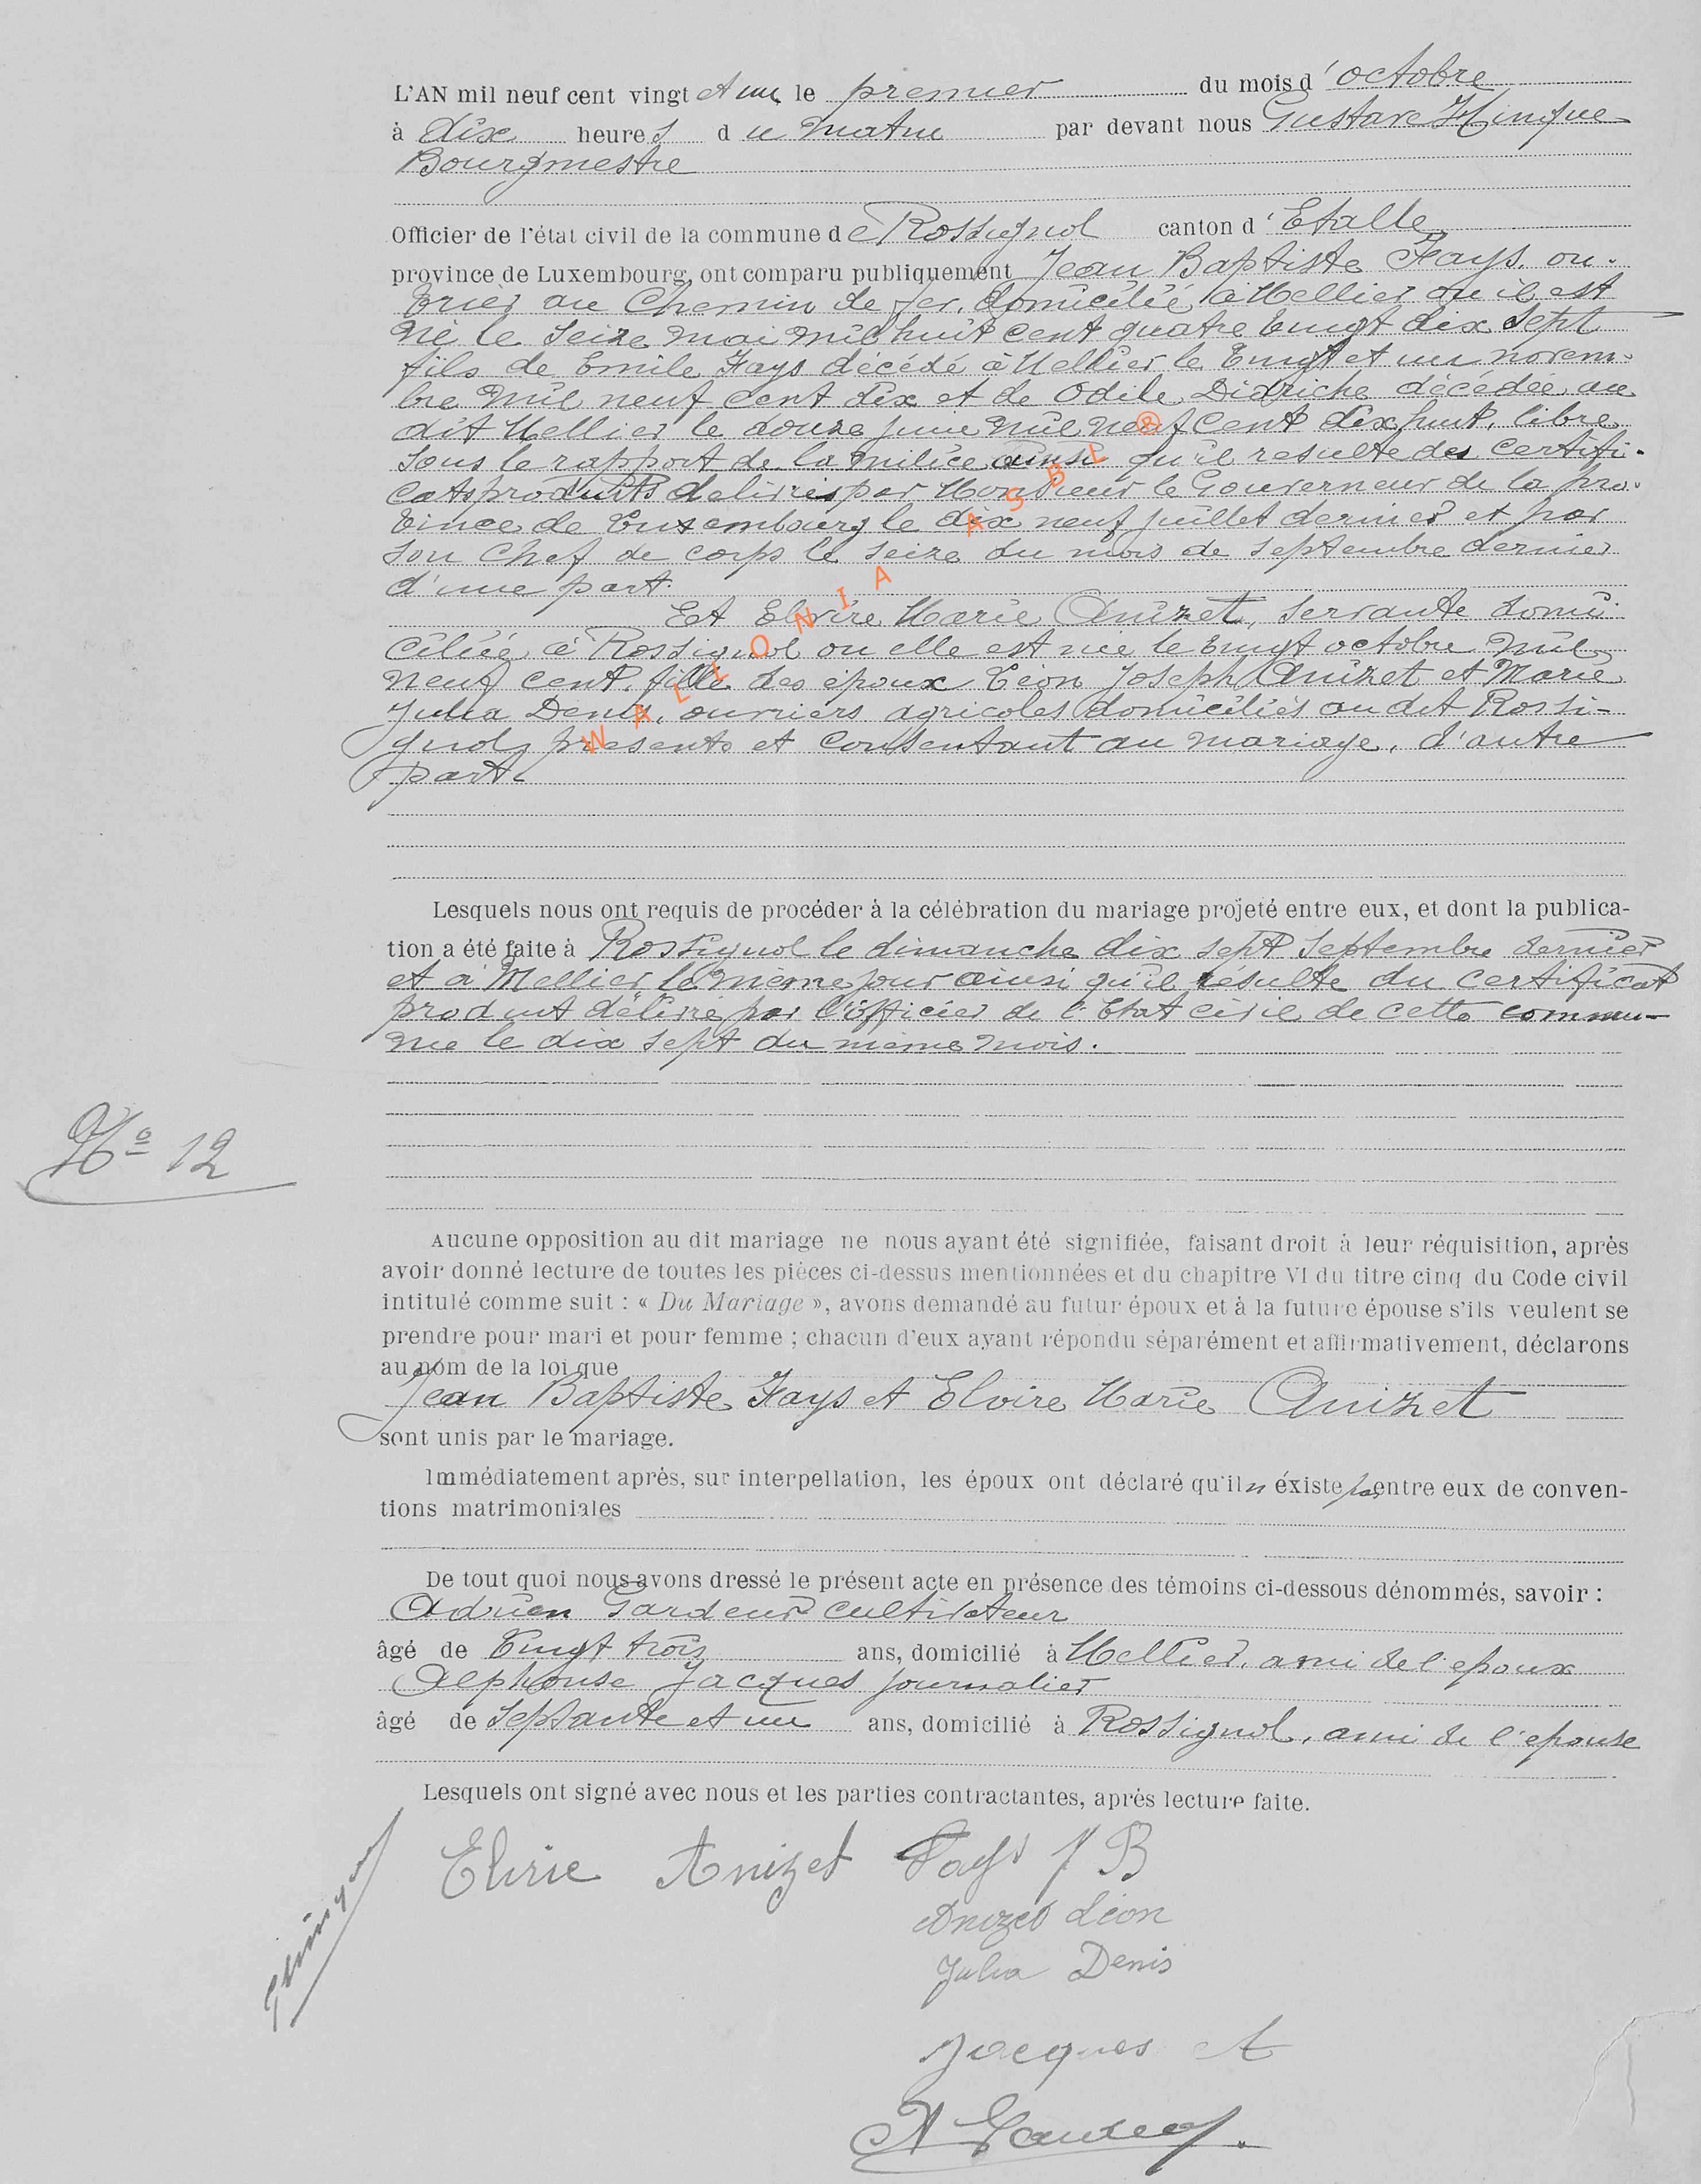 L'AN mil neuf cent vingt et un le premier du mois d'octobre
à dix heures du matin par devant nous Gustave Hinque
Bourgmestre
Officier de l'état civil de la commune de Rossignol canton d'Etalle
province de Luxembourg, ont comparu publiquement Jean Baptiste Fays, ou-
vrier au chemin de fer, domicilié à Mellier où il est
né le seize mai mil huit cent quatre vingt dix sept
fils de Emile Fays décédé à Mellier le vingt et un novem-
bre mil neuf cent dix et de Odile Didriche décédée au
dit Mellier le douze juin mil neuf cent dix huit, libre
sous le rapport de la milice ainsi qu'il resulte des certifi-
cats produits délivrés par Monsieur le Gouverneur de la pro-
vince de Luxembourg le dix neuf juillet dernier et par
son chef de corps le seize du mois de septembre dernier
d'une part.
Et Elvire Marie Anizet, servante domi-
ciliée à Rossignol ou elle est née le vingt octobre mil
neuf cent, fille des epoux Léon Joseph Anizet et Marie
Julia Denis, ouvriers agricoles domiciliés au dit Rossi-
gnol, présents et consentant au mariage, d'autre
part.
Lesquels nous ont requis de procéder à la célébration du mariage projeté entre eux, et dont la publica-
tion a été faite à Rossignol le dimanche dix sept septembre dernier
et à Mellier le même jour ainsi qu'il résulte du certificat
produit délivré par l'officier de l'Etat civil de cette commu-
ne le dix sept du même mois.
Nº 12
Aucune opposition au dit mariage ne nous ayant été signifiée, faisant droit à leur réquisition, après
avoir donné lecture de toutes les pièces ci-dessus mentionnées et du chapitre VI du titre cinq du Code civil
intitulé comme suit : « Du Mariage », avons demandé au futur époux et à la future épouse s'ils veulent se
prendre pour mari et pour femme ; chacun d'eux ayant répondu séparément et affirmativement, déclarons
au nom de la loi que
Jean Baptiste Fays et Elvire Marie Anizet
sont unis par le mariage.
Immédiatement après, sur interpellation, les époux ont déclaré qu'il n'existe pas entre eux de conven-
tions matrimoniales
De tout quoi nous avons dressé le présent acte en présence des témoins ci-dessous dénommés, savoir :
Adrien Gardeur cultivateur
âgé de vingt trois ans, domicilié à Mellier, ami de l'epoux
Alphonse Jacques journalier
âgé de septante et un ans, domicilié à Rossignol, ami de l'epouse
Lesquels ont signé avec nous et les parties contractantes, après lecture faite.
Elvire Anizet Fays J B
Anizet Léon
Julia Denis
Jacques A
WALLONIA ASBL ®